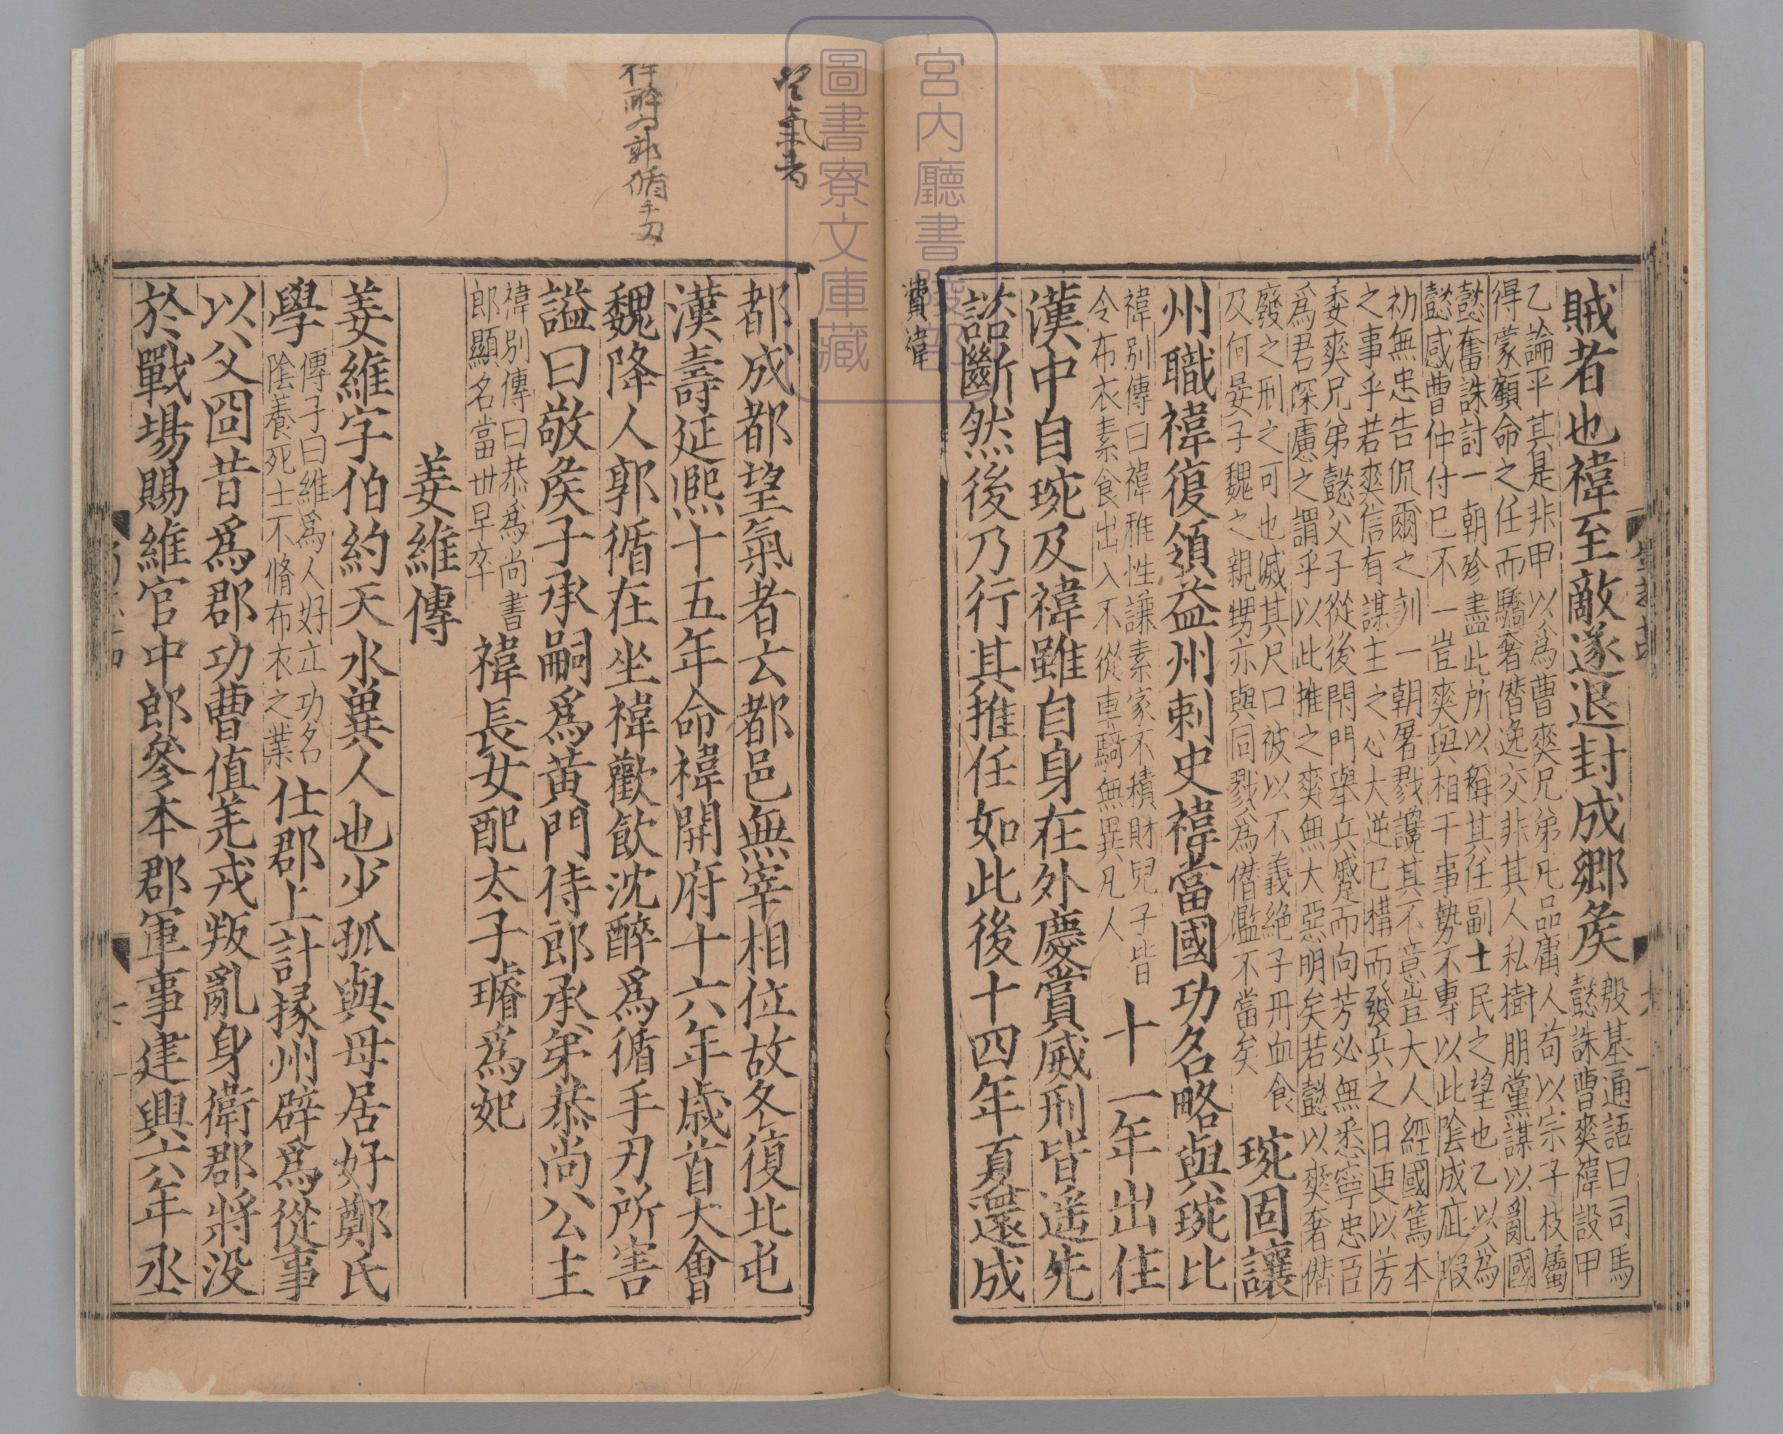 賊者也禕至敵遂退封成鄉矦
殷基通語曰司馬
懿誅曹爽禕設甲
乙論平其是非甲以爲曹爽兄弟凡品庸人苟以宗子枝屬
得蒙顧命之任而驕奢僭逸交非其人私樹朋黨謀以亂國
懿奮誅討一朝殄盡此所以稱其任副士民之望也乙以爲
懿感曹仲付己不一豈爽與相干事勢不專以此陰成疵瑕
初無忠告侃爾之訓一朝屠戮讒其不意豈大人經國篤本
之事乎若爽信有謀主之心大逆已構而發兵之日更以芳
委爽兄弟懿父子從後閉門舉兵蹙而向芳必無悉寧忠臣
爲君深慮之謂乎以此推之爽無大惡明矣若懿以爽奢僭
廢之刑之可也滅其尺口被以不義絶子丹血食
及何晏子魏之親甥亦與同戮爲僭濫不當矣
琬固讓
州職禕復領益州刺史禕當國功名略與琬比
十一年出住
禕別傳曰禕雅性謙素家不積財兒子皆
令布衣素食出入不從車騎無異凡人
漢中自琬及禕雖自身在外慶賞威刑皆遥先
諮斷然後乃行其推任如此後十四年夏還成
費禕
望氣者
都成都望氣者云都邑無宰相位故冬復北屯
漢壽延熙十五年命禕開府十六年歲首大會
沈醉爲郭循手刃
魏降人郭循在坐禕歡飲沈醉爲循手刃所害
謚曰敬矦子承嗣爲黄門侍郎承弟恭尚公主
禕別傳曰恭爲尚書
郎顯名當世早卒
禕長女配太子璿爲妃
姜維傳
姜維字伯約天水兾人也少孤與母居好鄭氏
學
傳子曰維爲人好立功名
陰養死士不脩布衣之業
仕郡上計掾州辟爲從事
以父冏昔爲郡功曹值羌戎叛亂身衛郡將没
於戰塲賜維官中郎參本郡軍事建興六年丞
宮内廳書陵部
圖書寮文庫藏